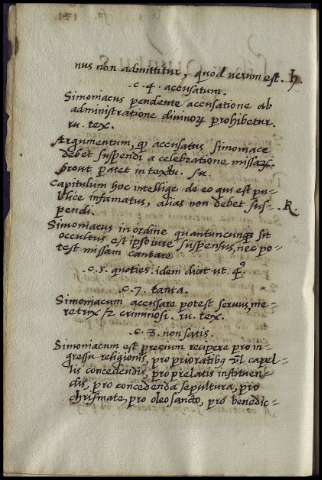 nus non admittitur, quod uerum est.
.c.4. accusatum.
Simoniacus pendente accusatione ab
administratione diuinorum prohibetur.
in. tex.
Argumentum, qd accusatus simoniace
debet suspendi a celebratione missarum
prout patet in textu.
Capitulum hoc intellige de eo qui est pu-
blice infamatus, alias non debet sus-
pendi.
Simoniacus in ordine quantuncunque sit
occultus est ipso iure suspensus, nec po-
test missam cantare
.c.5. quoties. idem dicit ut. 4º.
.c.7. tanta.
Simoniacum accusare potest seruus, me-
retrix et criminosi. in. tex.
.c.8. non satis.
Simoniacum est precium recipere pro in-
gressu religionis, pro prioratibus uel capel-
lis concedendis, pro prelatis instituen-
dis, pro concedenda sepultura, pro
chrismate, pro oleo sancto, pro benedic-